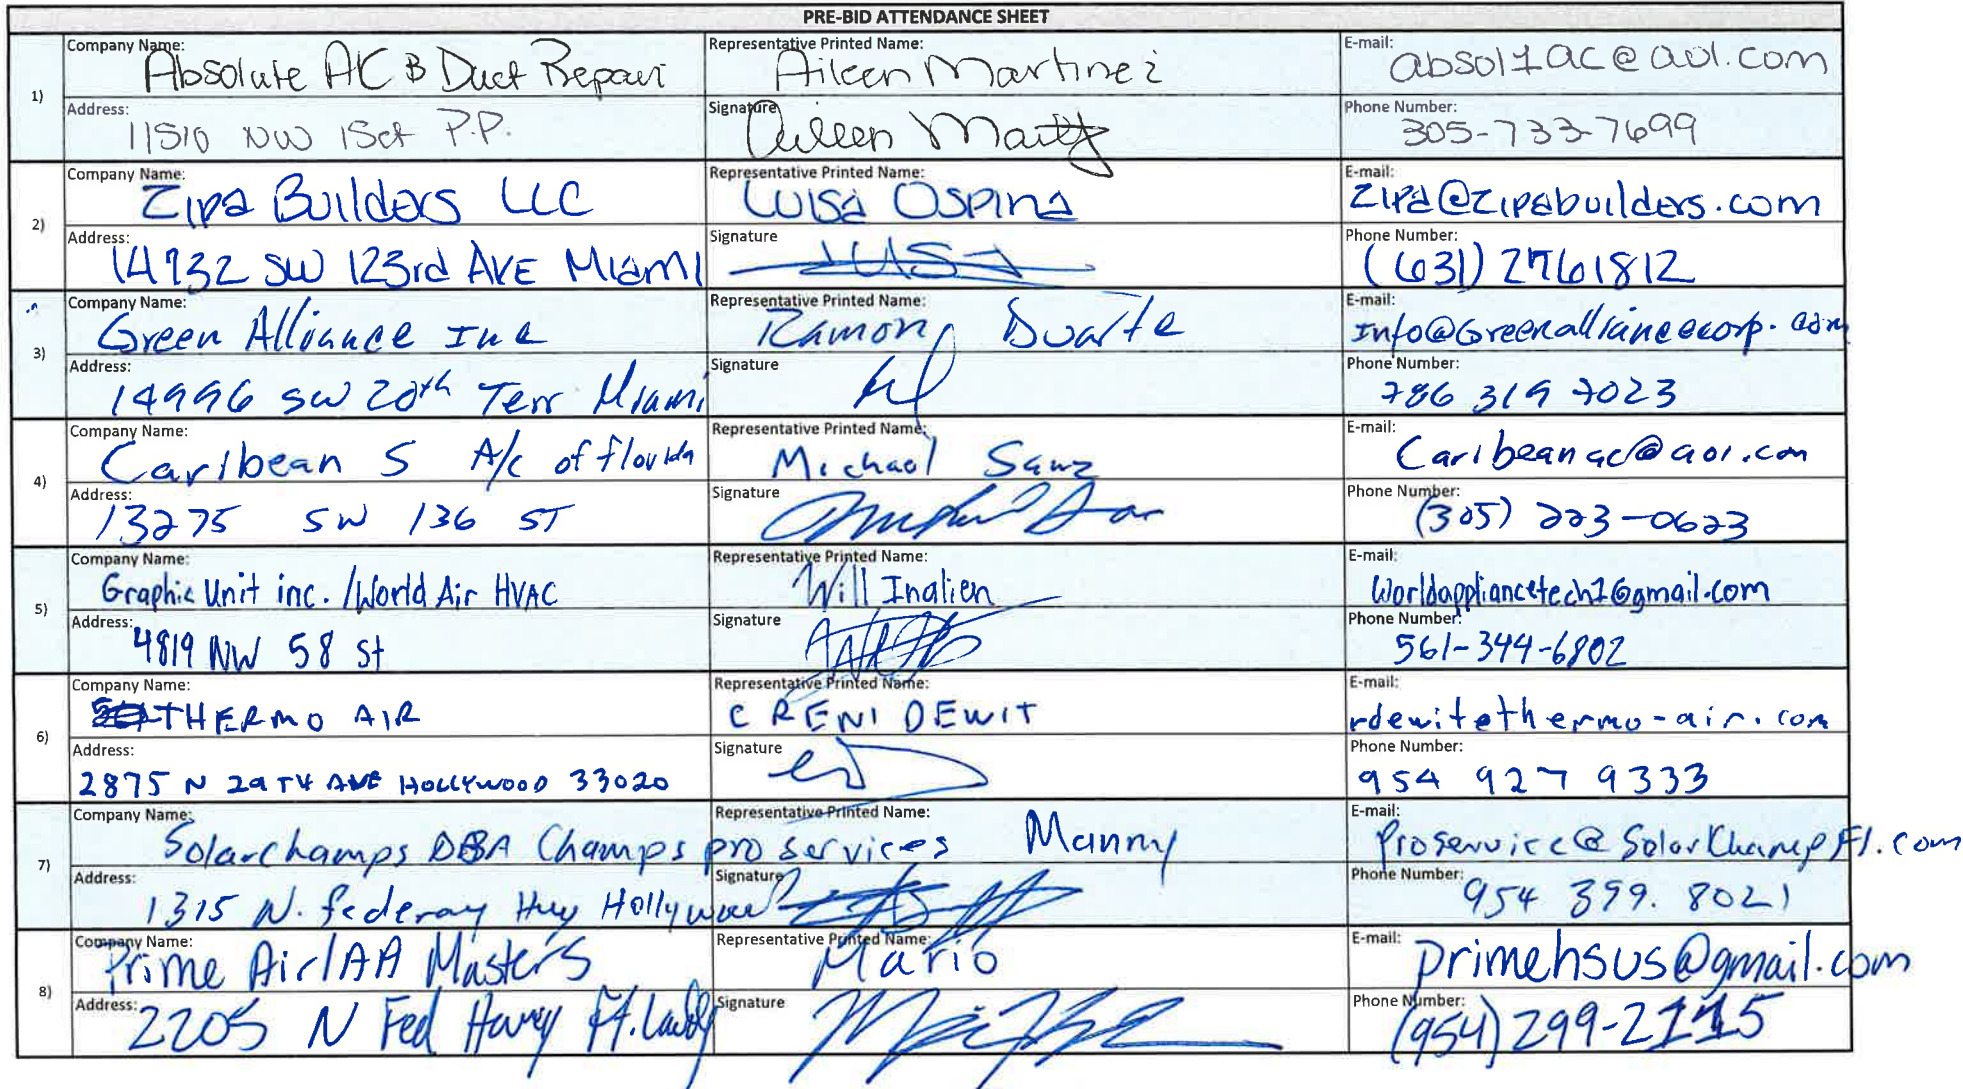 PRE-BID ATTENDANCE SHEET
1)
Company Name: Absolute AC & Duct Repair
Representative Printed Name: Aileen Martinez
E-mail: absol1ac@aol.com
Address: 11510 NW
Signature Aileen
Phone Number: 305-733-7699
2)
Company Name: Zipa Builders LLC
Representative Printed Name: Luisa Ospina
E-mail: zipa@zipabuilders.com
Address: 14732 SW 123rd AVE Miami
Signature Luisa
Phone Number: (631) 2761812
3)
Company Name: Green Alliance Inc
Representative Printed Name: Ramon Duarte
E-mail: Info@Greenalliancecorp.com
Address: 14996 SW 20th Terr Miami
Signature
Phone Number: 786 319 7023
4)
Company Name: Caribean S A/c of florida
Representative Printed Name: Michael Sanz
E-mail: Caribeanac@aol.com
Address: 13275 SW 136 ST
Signature
Phone Number: (305) 223-0623
5)
Company Name: Graphic Unit inc. /World Air HVAC
Representative Printed Name: Will Inalien
E-mail: Worldappliancetech1@gmail.com
Address: 4819 NW 58 St
Signature
Phone Number: 561-344-6802
6)
Company Name: THERMO AIR
Representative Printed Name: C RENI DEWIT
E-mail: rdewit@thermo-air.com
Address: 2875 N 29TH AVE HOLLYWOOD 33020
Signature
Phone Number: 954 927 9333
7)
Company Name: Solarchamps DBA Champs pro services
Representative Printed Name: Manny
E-mail: Proservice@SolarChampFl.com
Address: 1315 N. federay Hwy Hollywood
Signature
Phone Number: 954 399. 8021
8)
Company Name: Prime Air/AA Masters
Representative Printed Name: Mario
E-mail: primehsus@gmail.com
Address: 2205 N Fed Ft.
Signature
Phone Number: (954) 299-2115